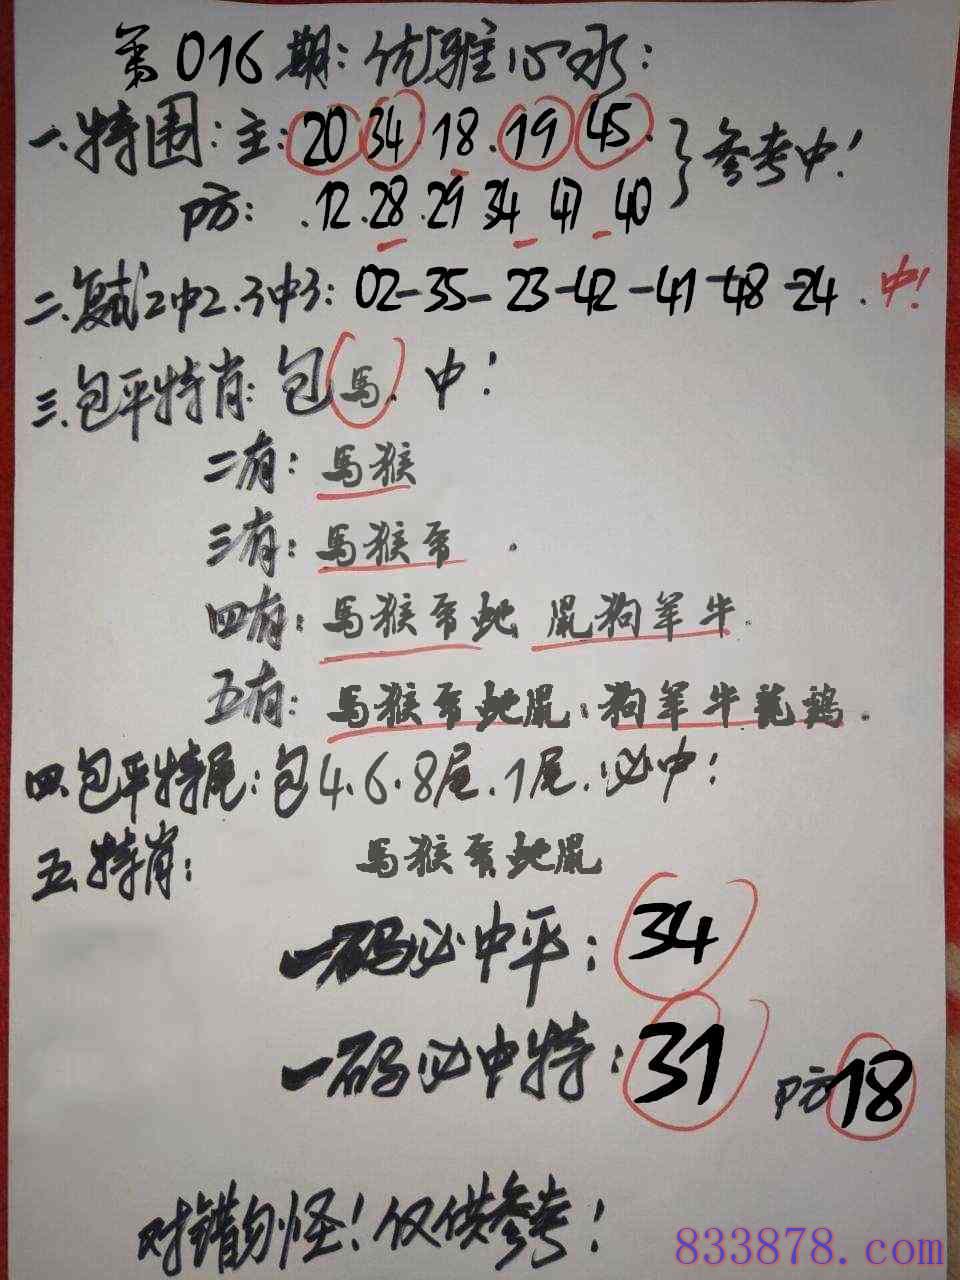 第016期：优雅心水：
一.特围：主：20 34.18.19 45. 参考中！
防：.12.28.29 34 47 40
二.复试2中2.3中3：02-35-23-42-41-48-24.中！
三.包平特肖：包馬.中！
二有：馬猴
三有：馬猴.
四有：馬猴蛇 鼠狗羊牛.
五有：馬猴蛇鼠.狗羊牛龍鷄.
四.包平特尾：包4.6.8尾.1尾.必中！
五.特肖：馬猴蛇鼠
一码必中平：34
一码必中特：31 防18
对错勿怪！仅供参考！
833878.com